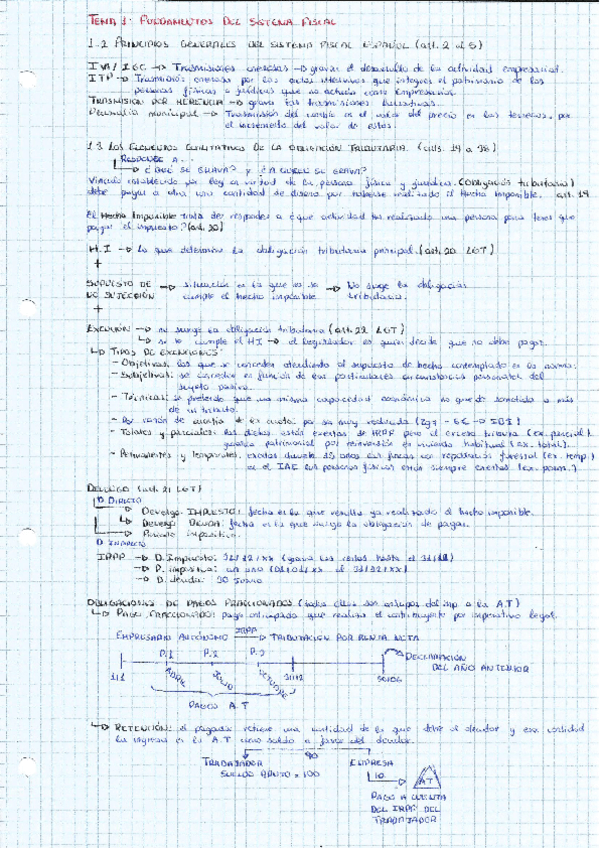 TEMA 1: FUNDAMENTOS DEL SISTEMA FISCAL
1.2 PRINCIPIOS GENERALES DEL SISTEMA FISCAL ESPAÑOL (art. 2 al 5)
IVA / IGC → Trasmisiones onerosas → gravar el desarrollo de la actividad empresarial.
ITP → Trasmisión onerosa por los actos internos que integra el patrimonio de las
personas físicas o jurídicas que no actúan como empresarios.
TRASMISIÓN POR HERENCIA → grava las trasmisiones lucrativas.
Plusvalía municipal → Trasmisión del cambio en el valor del precio en los terrenos, por
el incremento del valor de estos.
1.3 LOS ELEMENTOS CUALITATIVOS DE LA OBLIGACIÓN TRIBUTARIA. (arts. 19 a 38)
RESPONDE A...
¿QUÉ SE GRAVA? y ¿A QUIÉN SE GRAVA?
Vínculo establecido por ley en virtud de la persona física y jurídica. (Obligación tributaria)
debe pagar a otra una cantidad de dinero por haberse realizado el Hecho Imponible. art. 19
El Hecho Imponible trata de responder a ¿qué actividad ha realizado una persona para tener que
pagar el impuesto? (art. 20)
H.I → Lo que determina la obligación tributaria principal. (art. 20 LGT)
+
SUPUESTO DE NO SUJECCIÓN → situación en la que no se cumple el hecho imponible → No surge la obligación tributaria.
+
EXENCIÓN → no surge la obligación tributaria (art. 22 LGT)
↳ si se cumple el HI → el legislador es quien decide que no debe pagar.
↳ TIPOS DE EXENCIONES:
- Objetivas: las que se conceden atendiendo al supuesto de hecho contemplado en la norma.
- Subjetivas: se conceden en función de las particulares circunstancias personales del
sujeto pasivo.
- Técnicas: se pretende que una misma capacidad económica no quede sometida a más
de un tributo.
- Por razón de cuantía de la cuota: por su muy reducida (Ej: - 6€ → IBI)
- Totales y parciales: las dietas están exentas de IRPF pero el exceso tributa (ex. parcial).
ganancia patrimonial por reinversión en vivienda habitual (ex. total).
- Permanentes y temporales: exentas durante 15 años las fincas con repoblación forestal (ex. temp.)
en el IAE las personas físicas están siempre exentas (ex. perm.)
DEVENGO (art. 21 LGT)
D. DIRECTO
Devengo IMPUESTO: fecha en la que resulta ya realizado el hecho imponible.
Devengo DEUDA: fecha en la que surge la obligación de pagar.
Periodo impositivo.
D. INDIRECTO
IRPF → D. Impuesto: 31/12/xx (grava las rentas hasta el 31/12)
→ P. impositivo: un año (01/01/xx al 31/12/xx)
→ D. deuda: 30 Junio
OBLIGACIONES DE PAGOS FRACCIONADOS (todos ellos son anticipos del imp. a la A.T)
↳ PAGO FRACCIONADO: pago anticipado que realiza el contribuyente por imperativo legal.
EMPRESARIO AUTÓNOMO IRPF → TRIBUTACIÓN POR RENTA NETA
P.1 P.2 P.3
DECLARACIÓN
DEL AÑO ANTERIOR
1/1 ABRIL JULIO OCTUBRE 31/12 30/06
PAGOS A.T
↳ RETENCIÓN: el pagador retiene una cantidad de la que debe al deudor y esa cantidad
la ingresa en la A.T como saldo a favor del deudor.
TRABAJADOR 90 EMPRESA
SUELDO BRUTO = 100 10 A.T
PAGO A CUENTA
DEL IRPF DEL
TRABAJADOR